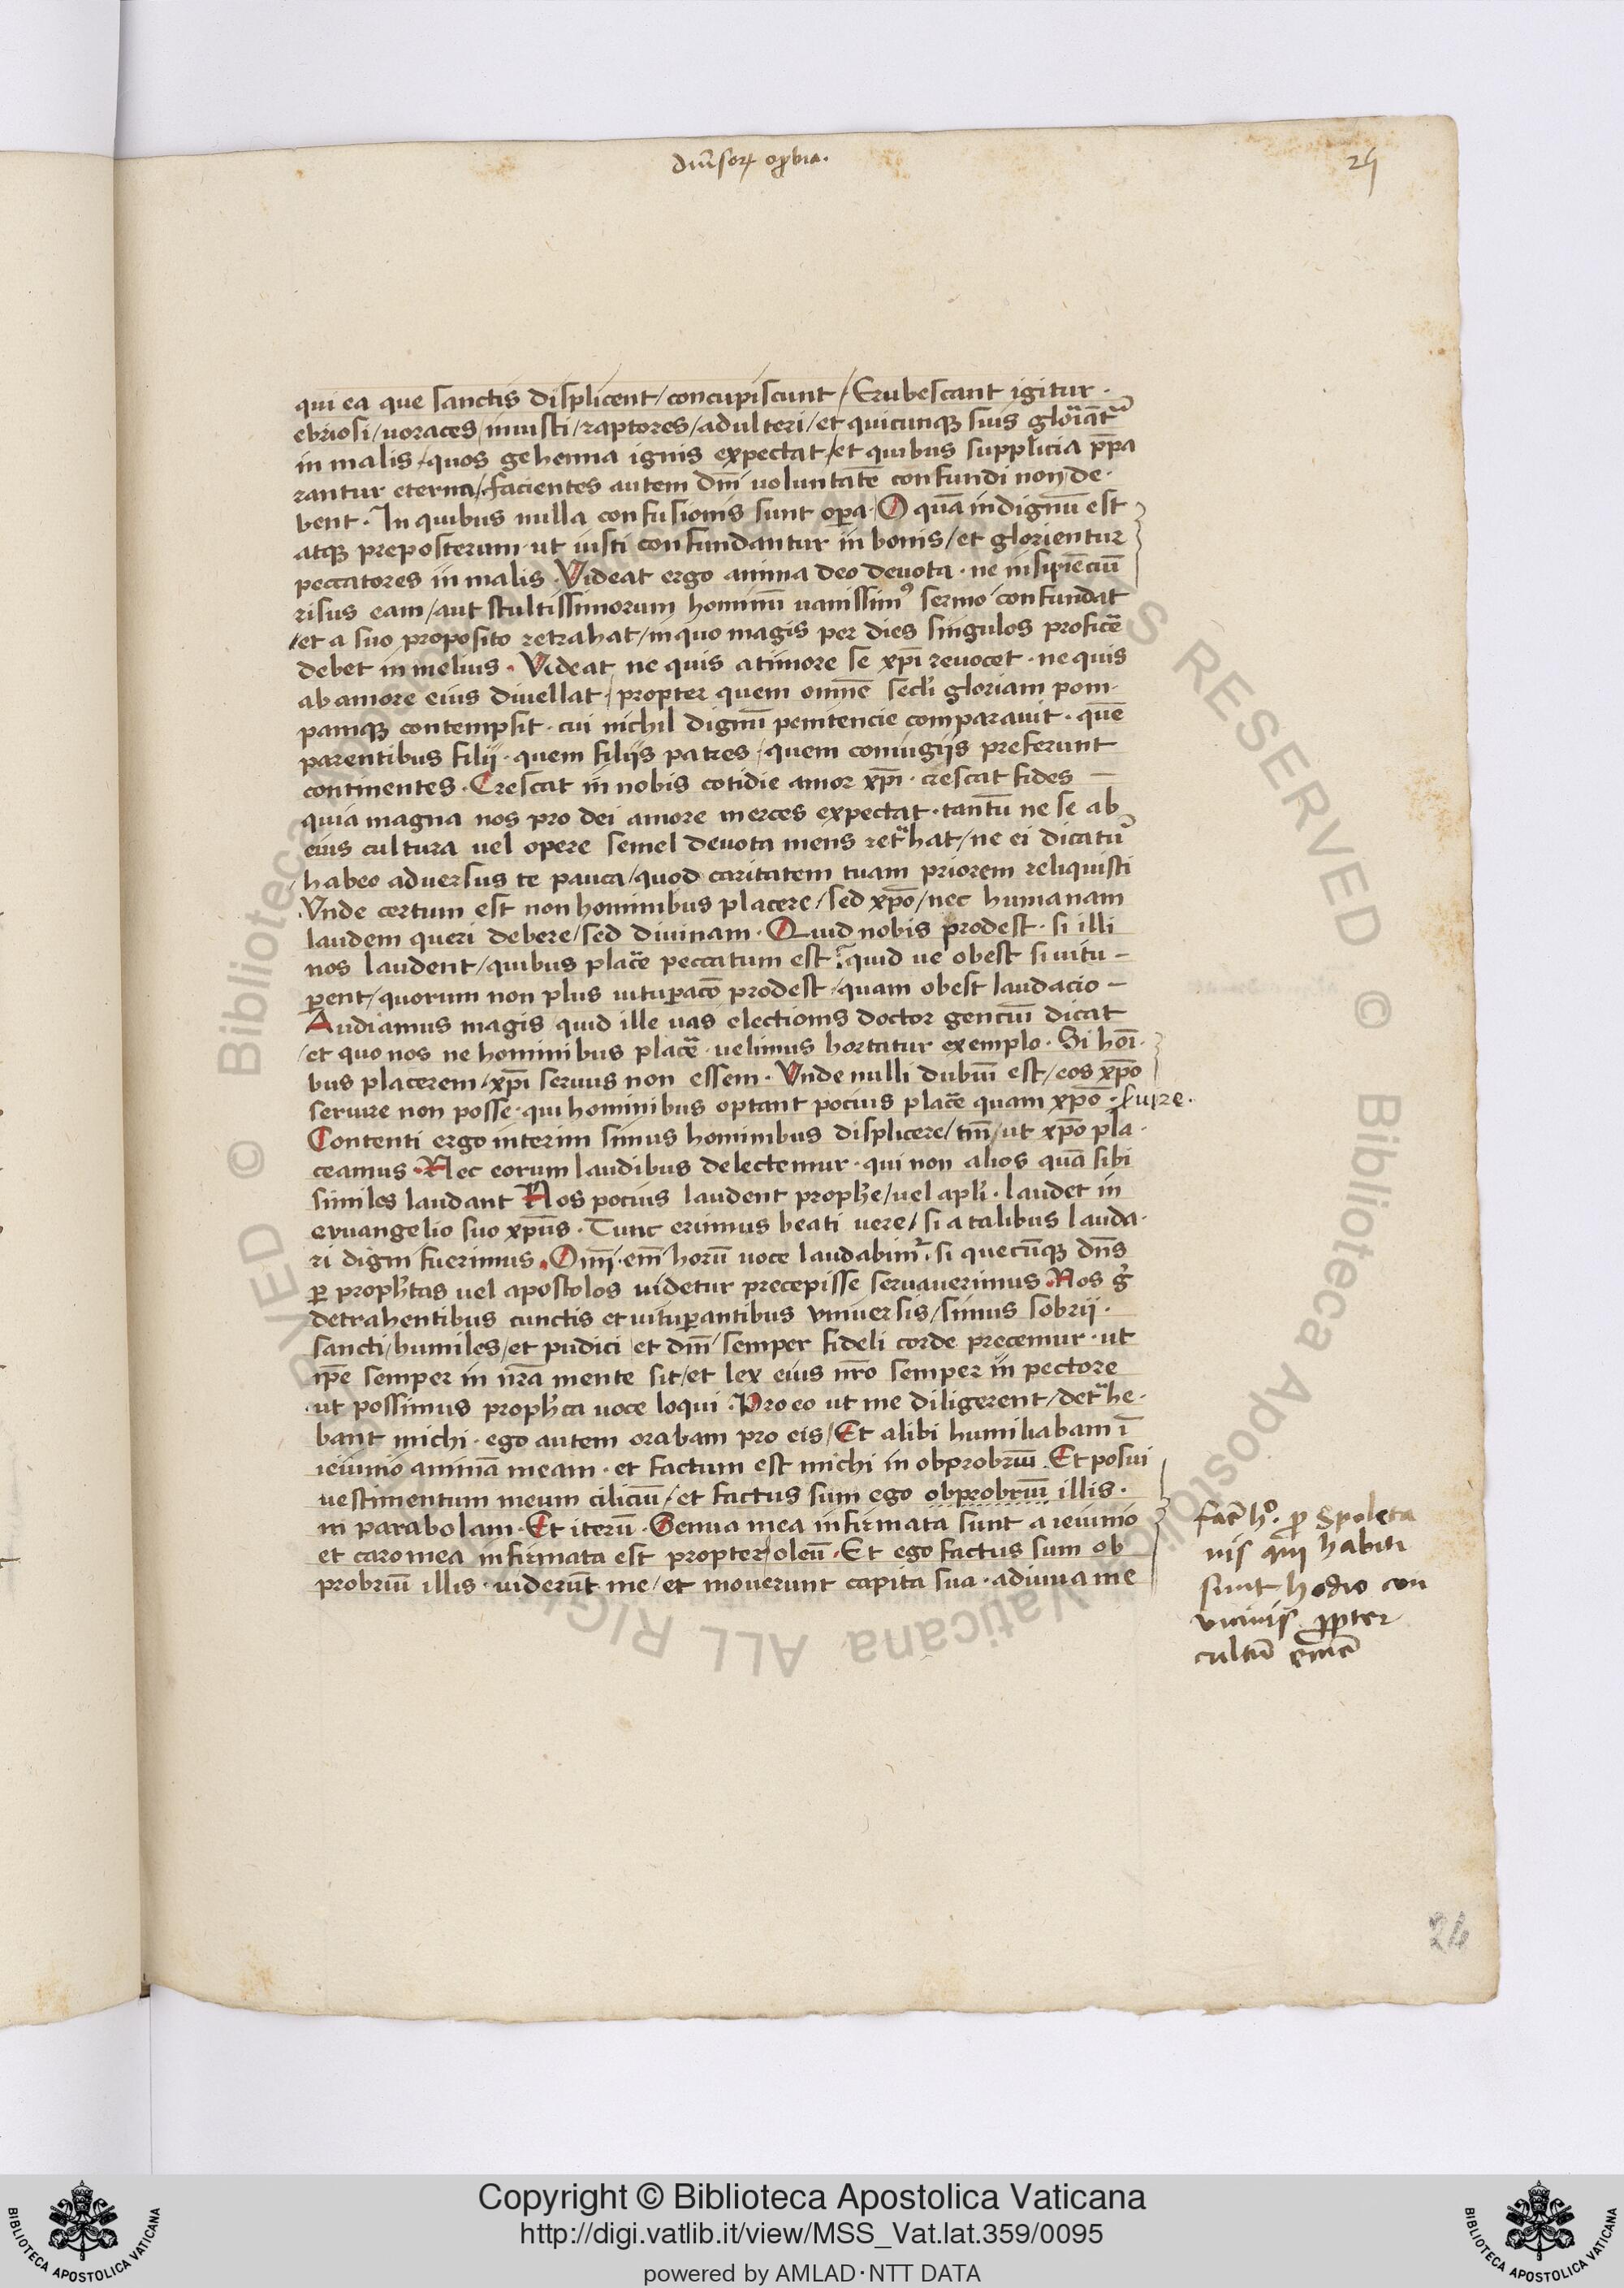 diũsoꝝ opbra.
24
qui ea que sanctis displicent/concupiscunt/Erubescant igitur·
ebriosi/uoraces/iniusti/raptores/adulteri/et quicunqꝫ suis glori͠at᷑
in malis/quos gehenna ignis expectat/et quibus supplicia p̄pa
rantur eterna/facientes autem dn̄i uoluntatē confundi non de·
bent· In quibus nulla confusionis sunt oꝑa· O quā indignū est
atqꝫ preposterum·ut iusti confundantur in bonis/et glorientur
peccatores in malis· Videat ergo anima deo deuota· ne insipiēciū
risus eam/aut stultissimorum hominū uanissimꝰ sermo confundat
/et a suo proposito retrahat/in quo magis per dies singulos proficē
debet in melius· Videat ne quis a timore se xp̄i reuocet· ne quis
ab amore eius diuellat/propter quem omnē secl̓i gloriam pom·
pamqꝫ contempsit· cui nichil dignū penitencie comparauit· quē
parentibus filij· quem filijs patres·quem coniugijs preferunt
continentes· Crescat in nobis cotidie amor xp̄i· crescat fides —
quia magna nos pro dei amore merces expectat·tantū ne se ab
eius cultura uel opere semel deuota mens ret͛hat/ne ei dicatu᷑
/habeo aduersus te pauca/quod caritatem tuam priorem reliquisti
Vnde certum est non hominibus placere/sed xp̄o/nec humanam
laudem queri debere/sed diuinam· Quid nobis prodest· si illi
nos laudent/quibus placē peccatum est· quid ue obest si uitu —
ꝑent/quorum non plus uituꝑacō prodest·quam obest laudacio —
Audiamus magis quid ille uas electionis doctor genciū dicat
/et quo nos ne hominibus placē·uelimus hortatur exemplo· Si hoī·
bus placerem/xp̄i seruus non essem· Vnde nulli dubiū est/eos xp̄o
seruire non posse·qui hominibus optant pocius placē quam xp̄o·
Contenti ergo interim simus hominibus displicere/tm̄/ut xp̄o pla·
ceamus· Nec eorum laudibus delectemur·qui non alios quā sibi
similes laudant Nos pocius laudent proph̄e/uel apl̓i· laudet in
evuangelio suo xp̄us· Tunc erimus beati uere/si a talibus lauda·
ri digni fuerimus· Om̄i·em̄ horū uoce laudabim᷑·si quecūqꝫ dn̄s
ꝑ proph̄tas uel apostolos uidetur precepisse seruauerimus· Nos g̓
detrahentibus cunctis et uituꝑantibus vniuersis/simus sobrij·
sancti/humiles/et pudici/et dn̄m semper fideli corde precemur· ut
ip̄e semper in nr̄a mente sit/et lex eius nr̄o semper in pectore
·ut possimus proph̄ca uoce loqui· Pro eo ut me diligerent/det͛he·
bant michi· ego autem orabam pro eis/Et alibi humiliabam ī
ieiunio animā meam· et factum est michi in obprobriū· Et posui
uestimentum meum ciliciū/et factus sum ego obprobriū illis·
in parabolam· Et iterū· Genua mea infirmata sunt a ieiunio
et caro mea infirmata est propter oleū· Et ego factus sum ob
probriū illis·uiderūt me/et mouerunt capita sua·adiuua me
fac̄ h̄ᵒ. ꝓ Spoleta
nis qui habiti
sunt hodio con
vicinis ꝓpter
cultū
24
Copyright © Biblioteca Apostolica Vaticana
http://digi.vatlib.it/view/MSS_Vat.lat.359/0095
powered by AMLAD·NTT DATA
BIBLIOTECA APOSTOLICA VATICANA
BIBLIOTECA APOSTOLICA VATICANA
© Biblioteca Apostolica Vaticana ALL RIGHTS RESERVED